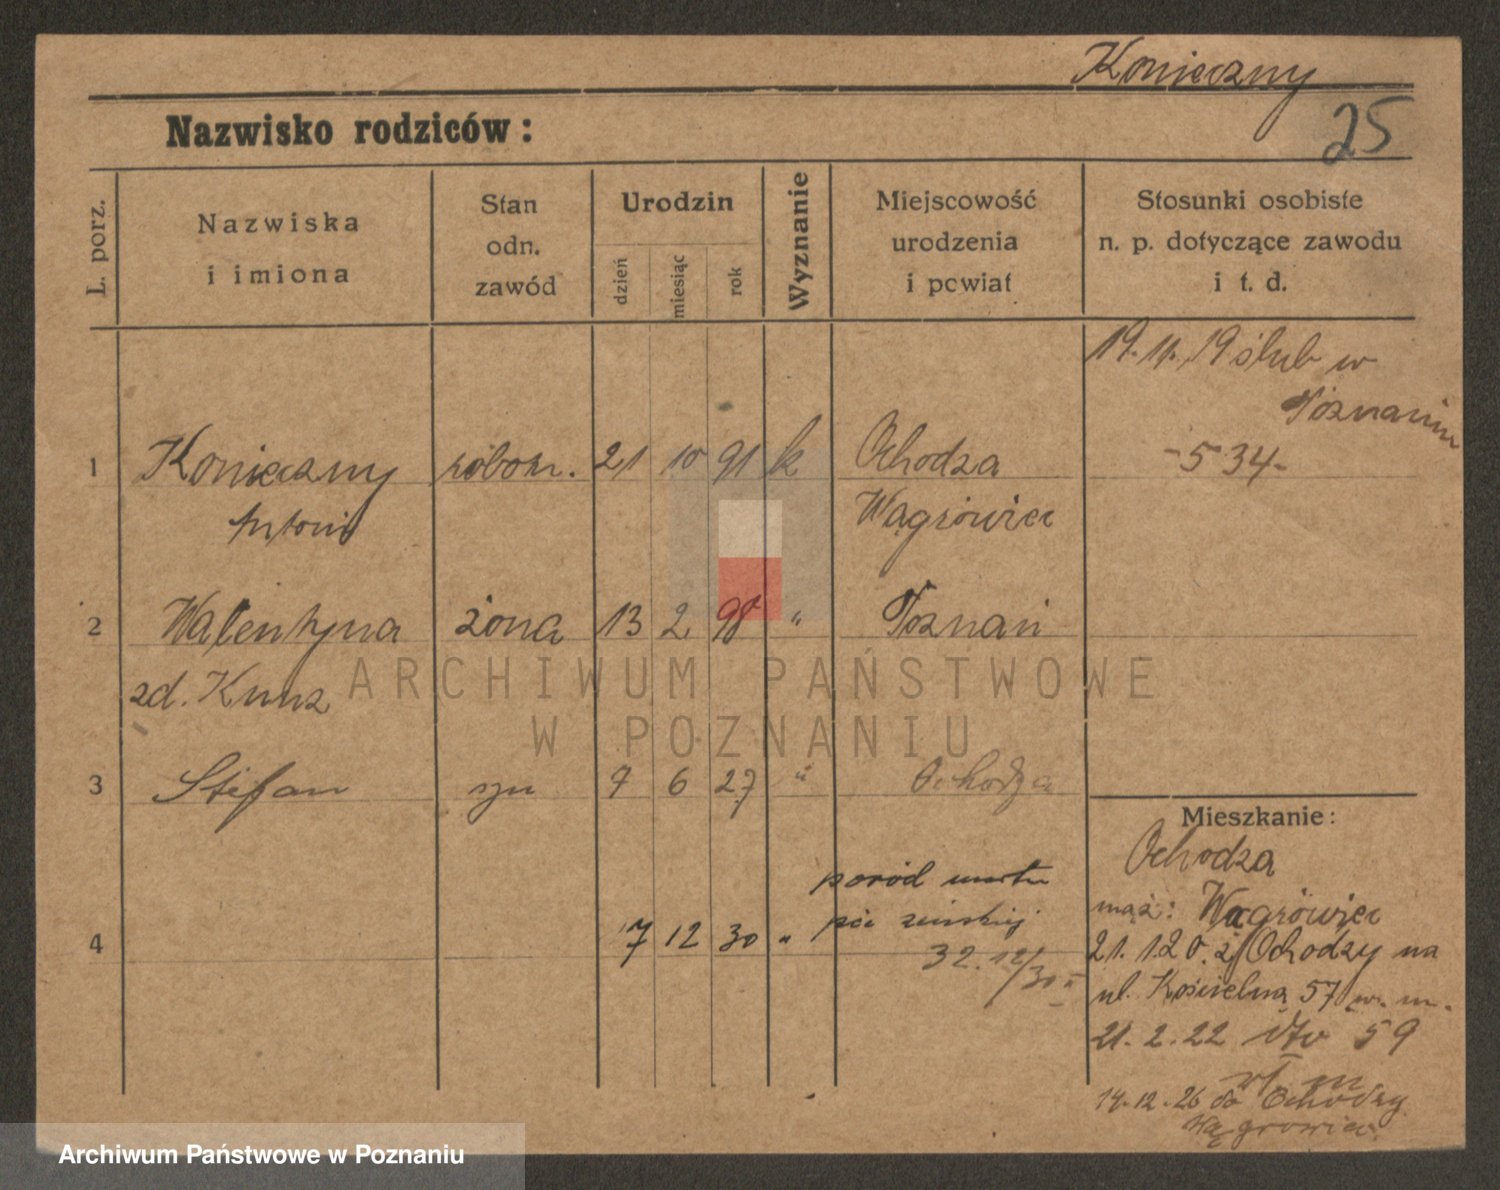 Konieczny
25
Nazwisko rodziców:
L. porz.
Nazwiska
i imiona
Stan
odn.
zawód
Urodzin
dzień
miesiąc
rok
Wyznanie
Miejscowość
urodzenia
i powiat
Stosunki osobiste
n. p. dotyczące zawodu
i t. d.
19. 11. 19 ślub w
Poznaniu
-534-
1 Konieczny robotn. 21 10 91 k Ochodza
Antoni Wągrówiec
2 Walentyna żona 13 2 98 " Poznań
zd. Kunz
ARCHIWUM PAŃSTWOWE
W POZNANIU
3 Stefan syn 7 6 27 " Ochodza
Mieszkanie:
Ochodza
mąż: Wągrówiec
poród
4 7 12 30 "
32. 12/30
21. 1.20. z Ochodzy na
ul. Kościelną 57 w. m.
21. 2. 22 59
14.12.26 do Ochodzy
Wągrowiec
Archiwum Państwowe w Poznaniu